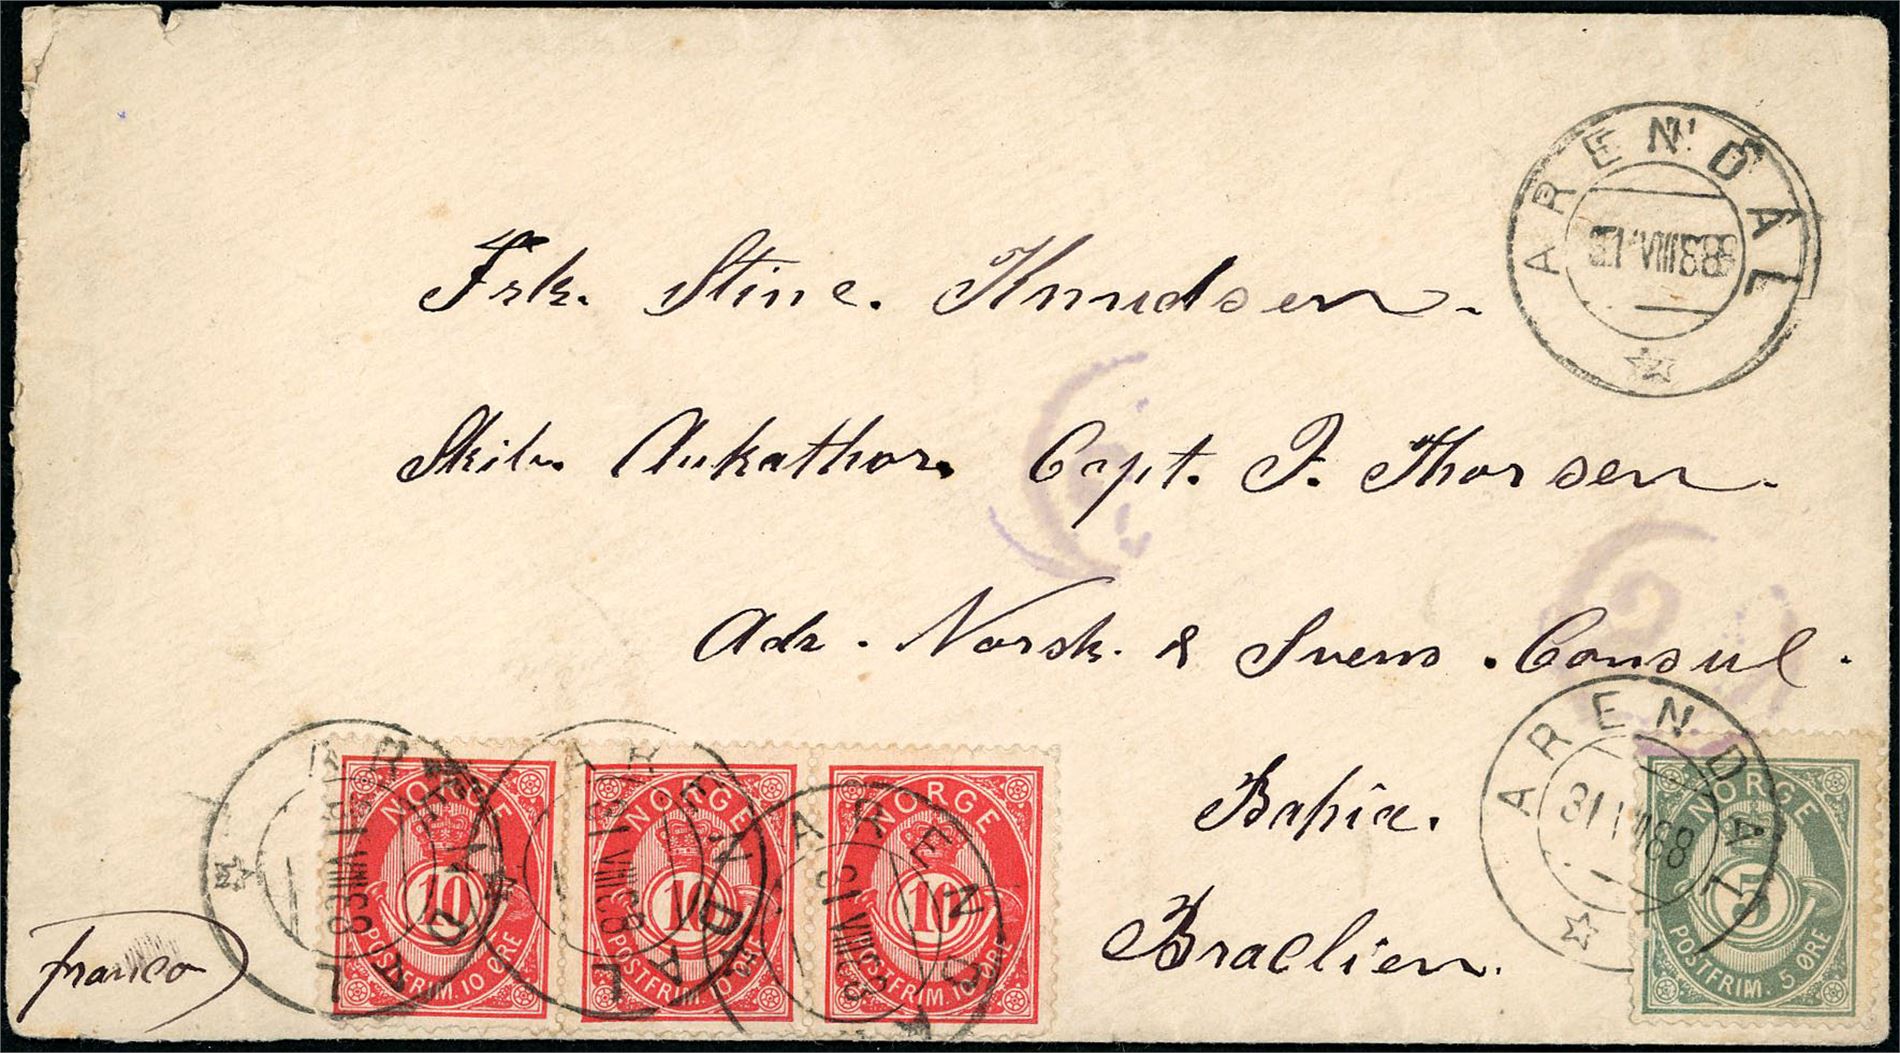 ARENDAL
Frk. Stine. Knudsen.
Skib. Aukathor. Capt. F. Thorsen.
Adr. Norsk. & Svens. Consul.
Bahia.
Braclien.
franco
ARENDAL
NORGE
10
POSTFRIM. 10 ØRE
ARENDAL
NORGE
10
POSTFRIM. 10 ØRE
ARENDAL
NORGE
10
POSTFRIM. 10 ØRE
ARENDAL
31 VIII 88
NORGE
5
POSTFRIM. 5 ØRE